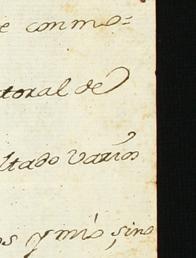 e conmo=
toral de
ltado varios
os y mío, sino